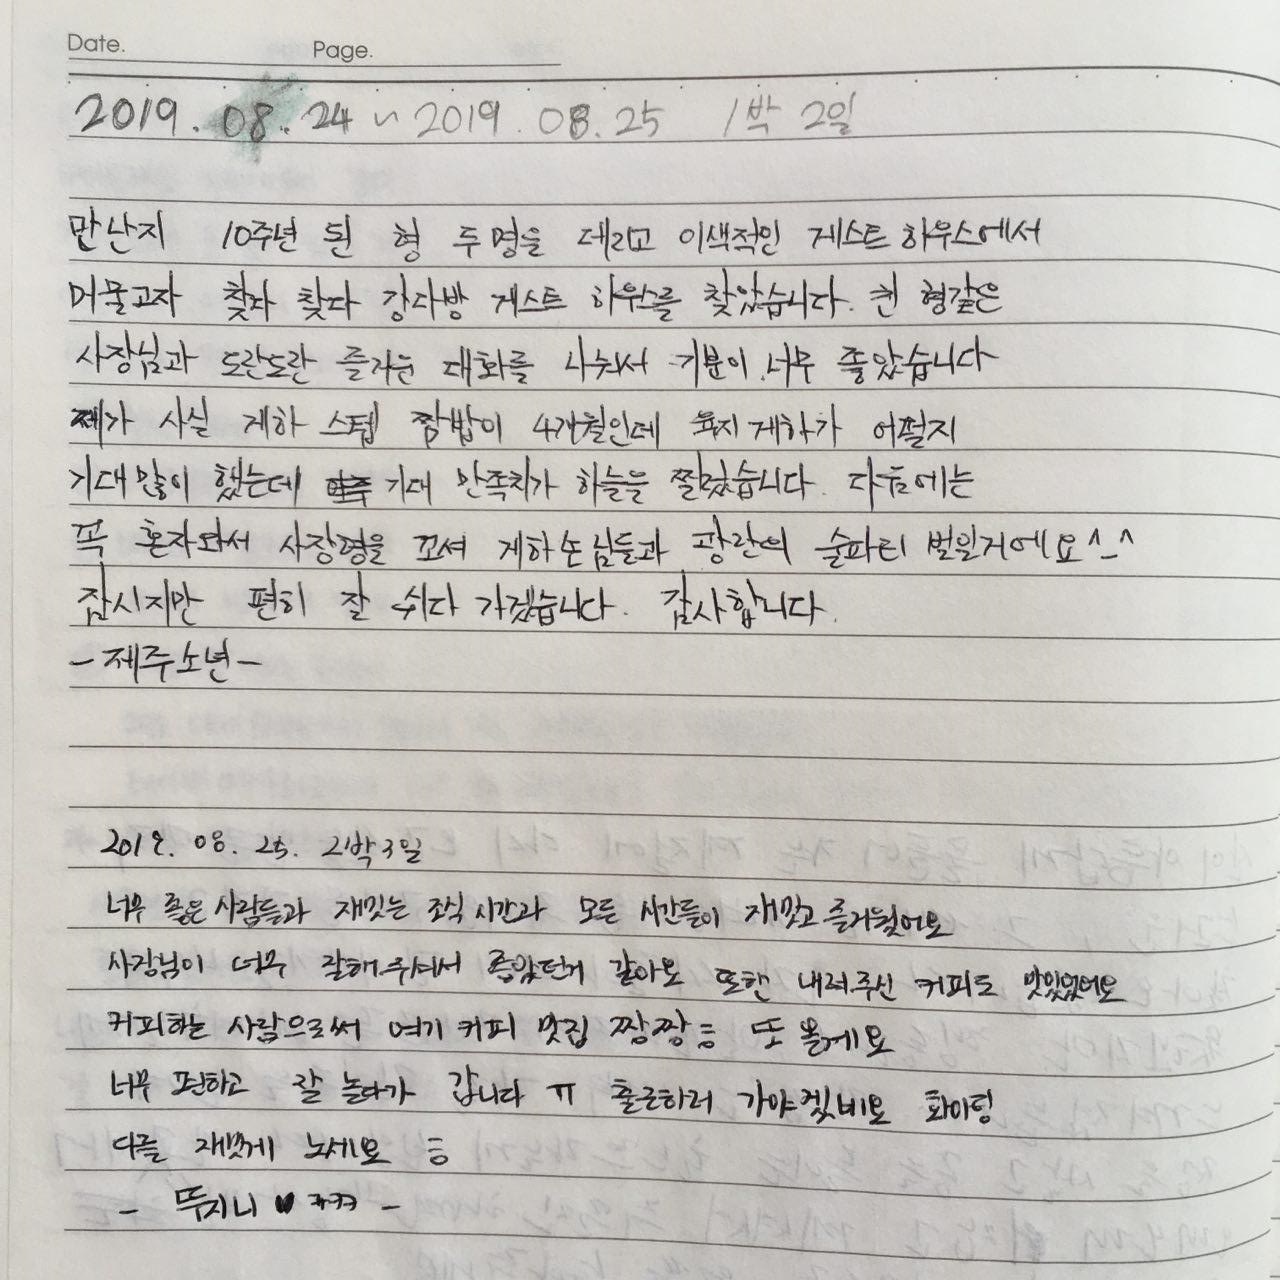 Date. Page.
2019. 08. 24 ~ 2019. 08. 25 1박 2일
만난지 10주년 된 형 두명을 데리고 이색적인 게스트하우스에서
머물고자 찾다 찾다 강다방 게스트 하우스를 찾았습니다. 친 형같은
사장님과 도란도란 즐거운 대화를 나눠서 기분이 너무 좋았습니다
제가 사실 게하 스텝 짬밥이 4개월인데 육지게하가 어떨지
기대많이 했는데 기대 만족치가 하늘을 찔렀습니다. 다음에는
꼭 혼자와서 사장형을 꼬셔 게하손님들과 광란의 술파티 벌일거에요^_^
잠시지만 편히 잘 쉬다 가겠습니다. 감사합니다.
-제주소년-
2019. 08. 25. 2박3일
너무 좋은 사람들과 재밌는 조식시간과 모든 시간들이 재밌고 즐거웠어요
사장님이 너무 잘해주셔서 좋았던거 같아요 또한 내려주신 커피도 맛있었어요
커피하는 사람으로써 여기 커피 맛집 짱짱 또 올게요
너무 편하고 잘 놀다가 갑니다 ㅠ 출근하러 가야겠네요 화이팅
다들 재밌게 노세요
- 뚜지니 ♥ ㅋㅋㅋ -